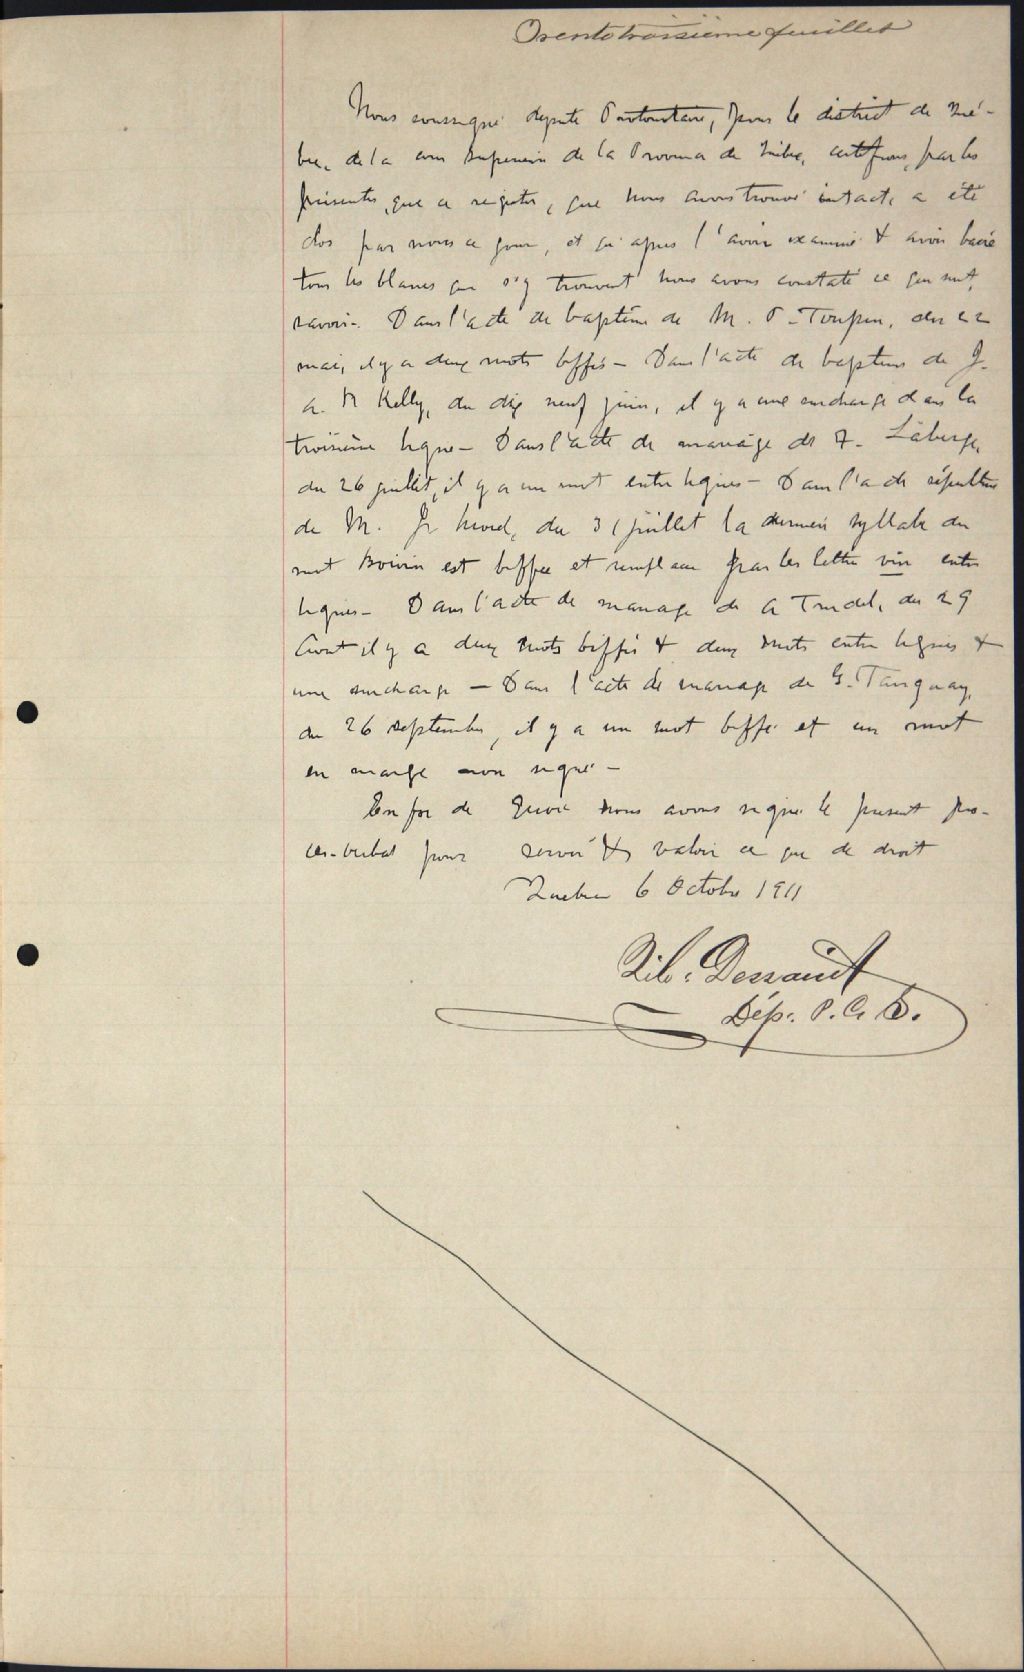 Trente troisième feuillet
Nous soussigné député Protonotaire, pour le district de Qué-
bec, de la cour supérieure de la Province de Québec, certifions, par les
présentes, que ce registre, que nous avons trouvé intact, a été
clos par nous ce jour, et qu'après l'avoir examiné & avoir barré
tous les blancs qui s'y trouvent nous avons constaté ce qui suit,
savoir. Dans l'acte de baptême de M. P. Toupin, du 22
mai, il y a deux mots biffés - Dans l'acte de baptême de J.
A. R Kelly, du dix neuf juin, il y a une surcharge dans la
troisième ligne - Dans l'acte de mariage de F. Laberge,
du 26 juillet, il y a un mot entre lignes - Dans l'acte sépulture
de M. J. du 31 juillet la dernière syllabe du
mot Boivin est biffée et remplacée par les lettre vin entre
lignes - Dans l'acte de mariage de A Trudel, du 29
Aout il y a deux mots biffés & deux mots entre lignes &
une surcharge - Dans l'acte de mariage de G. Tanguay,
du 26 septembre, il y a un mot biffé et un mot
en marge non signé -
En foi de quoi nous avons signé le présent pro-
cès-verbal pour servir & valoir ce que de droit
Québec 6 Octobre 1911
Dessaint
Dép. P. C. S.